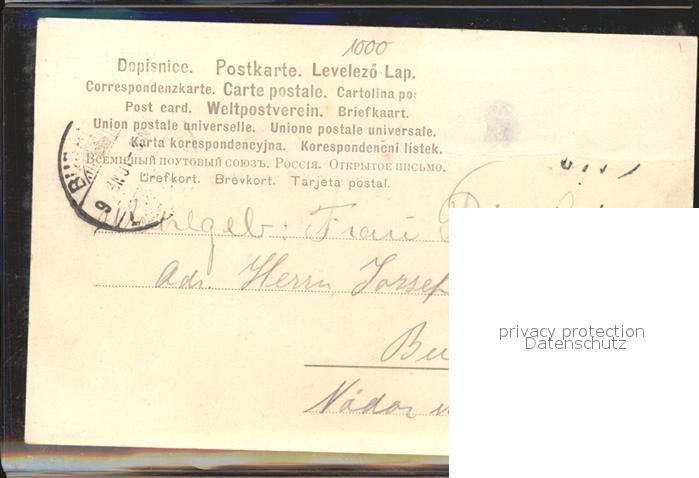 1000
Dopisnice. Postkarte. Levelező-Lap.
Correspondenzkarte. Carte postale. Cartolina po
Post card. Weltpostverein. Briefkaart.
Union postale universelle. Unione postale universale.
Karta korespondencyjna. Korespondenčni listek.
Всемірный почтовый союзъ. Россія. Открытое письмо.
Brefkort. Brevkort. Tarjeta postal.
Frau
Adr. Herrn Jozsef
Bu
Nádor u
privacy protection
Datenschutz